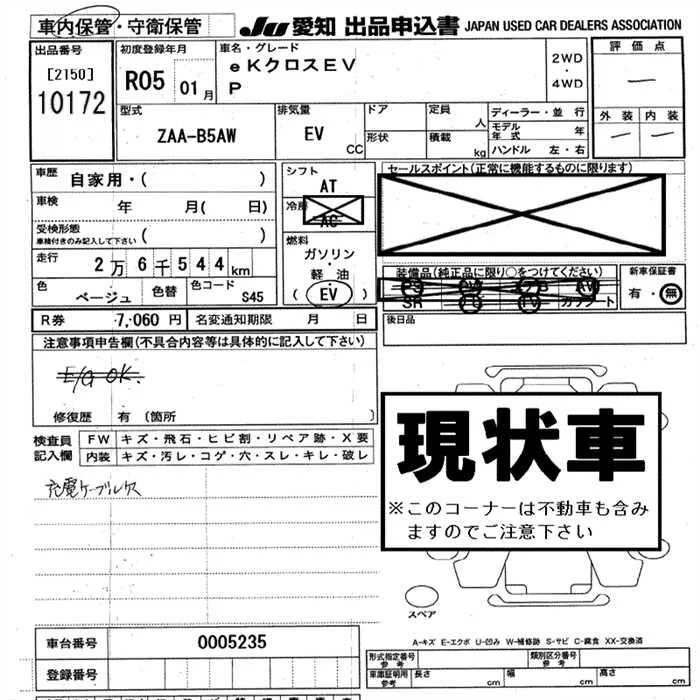 車内保管・守衛保管
JU 愛知 出品申込書 JAPAN USED CAR DEALERS ASSOCIATION
出品番号
[2150]
10172
初度登録年月
R05 01月
車名・グレード
eKクロスEV
P
2WD
・
4WD
評価点
外装 内装
型式
ZAA-B5AW
排気量
EV
CC
ドア
形状
定員 人
積載 kg
ディーラー・並行
モデル年式 年
ハンドル 左・右
車歴 自家用・( )
車検 年 月( 日)
受検形態
車検付きのみ記入して下さい ( )
走行 2万6千544km
色 ベージュ 色替 色コード S45
シフト
AT
冷房
AC
燃料
ガソリン
・
軽油
( EV )
セールスポイント(正常に機能するものに限ります)
装備品(純正品に限り○をつけてください)
PS AV
SR カワシート
新車保証書
有・無
R券 7,060円 名変通知期限 月 日
後日品
注意事項申告欄(不具合内容等は具体的に記入して下さい)
E/G OK.
修復歴 有 〔箇所 〕
検査員
記入欄
FW キズ・飛石・ヒビ割・リペア跡・X要
内装 キズ・汚レ・コゲ・穴・スレ・キレ・破レ
充電ケーブルケス
現状車
※このコーナーは不動車も含み
ますのでご注意下さい
スペア
A-キズ E-エクボ U-凹み W-補修跡 S-サビ C-腐食 XX-交換済
車台番号 0005235
登録番号
形式指定番号
参考
類別区分番号
参考
車庫証明用
参考
長さ cm 幅 cm 高さ cm